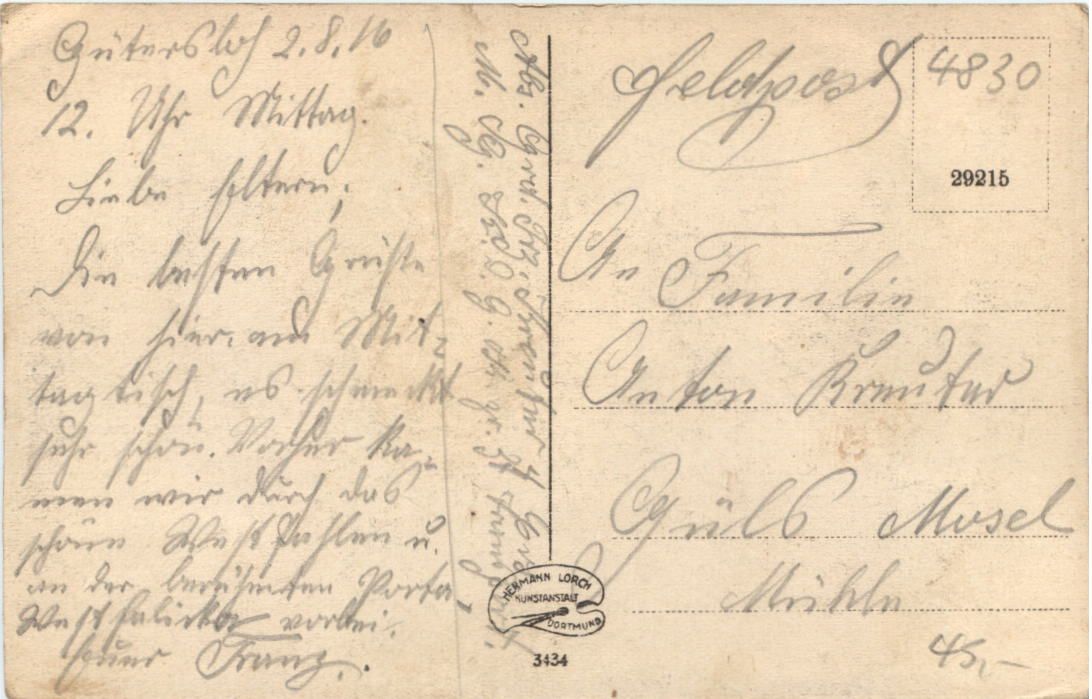 Gütersloh 2.8.16
12. Uhr Mittag.
Liebe Eltern,
Die besten Grüße
von hier. am Mit-
tagtisch, es schmeckt
sehr schön. Vorher ka-
men wir durch das
schöne Westfahlen u.
an der berühmten Porta
Westfalicka vorbei.
Euer Franz.
Abs.
M. G.
Feldpost
4830
29215
An Familie
Anton Kreuter
Güls Mosel
Mühle
45,-
HERMANN LORCH
KUNSTANSTALT
DORTMUND
3434